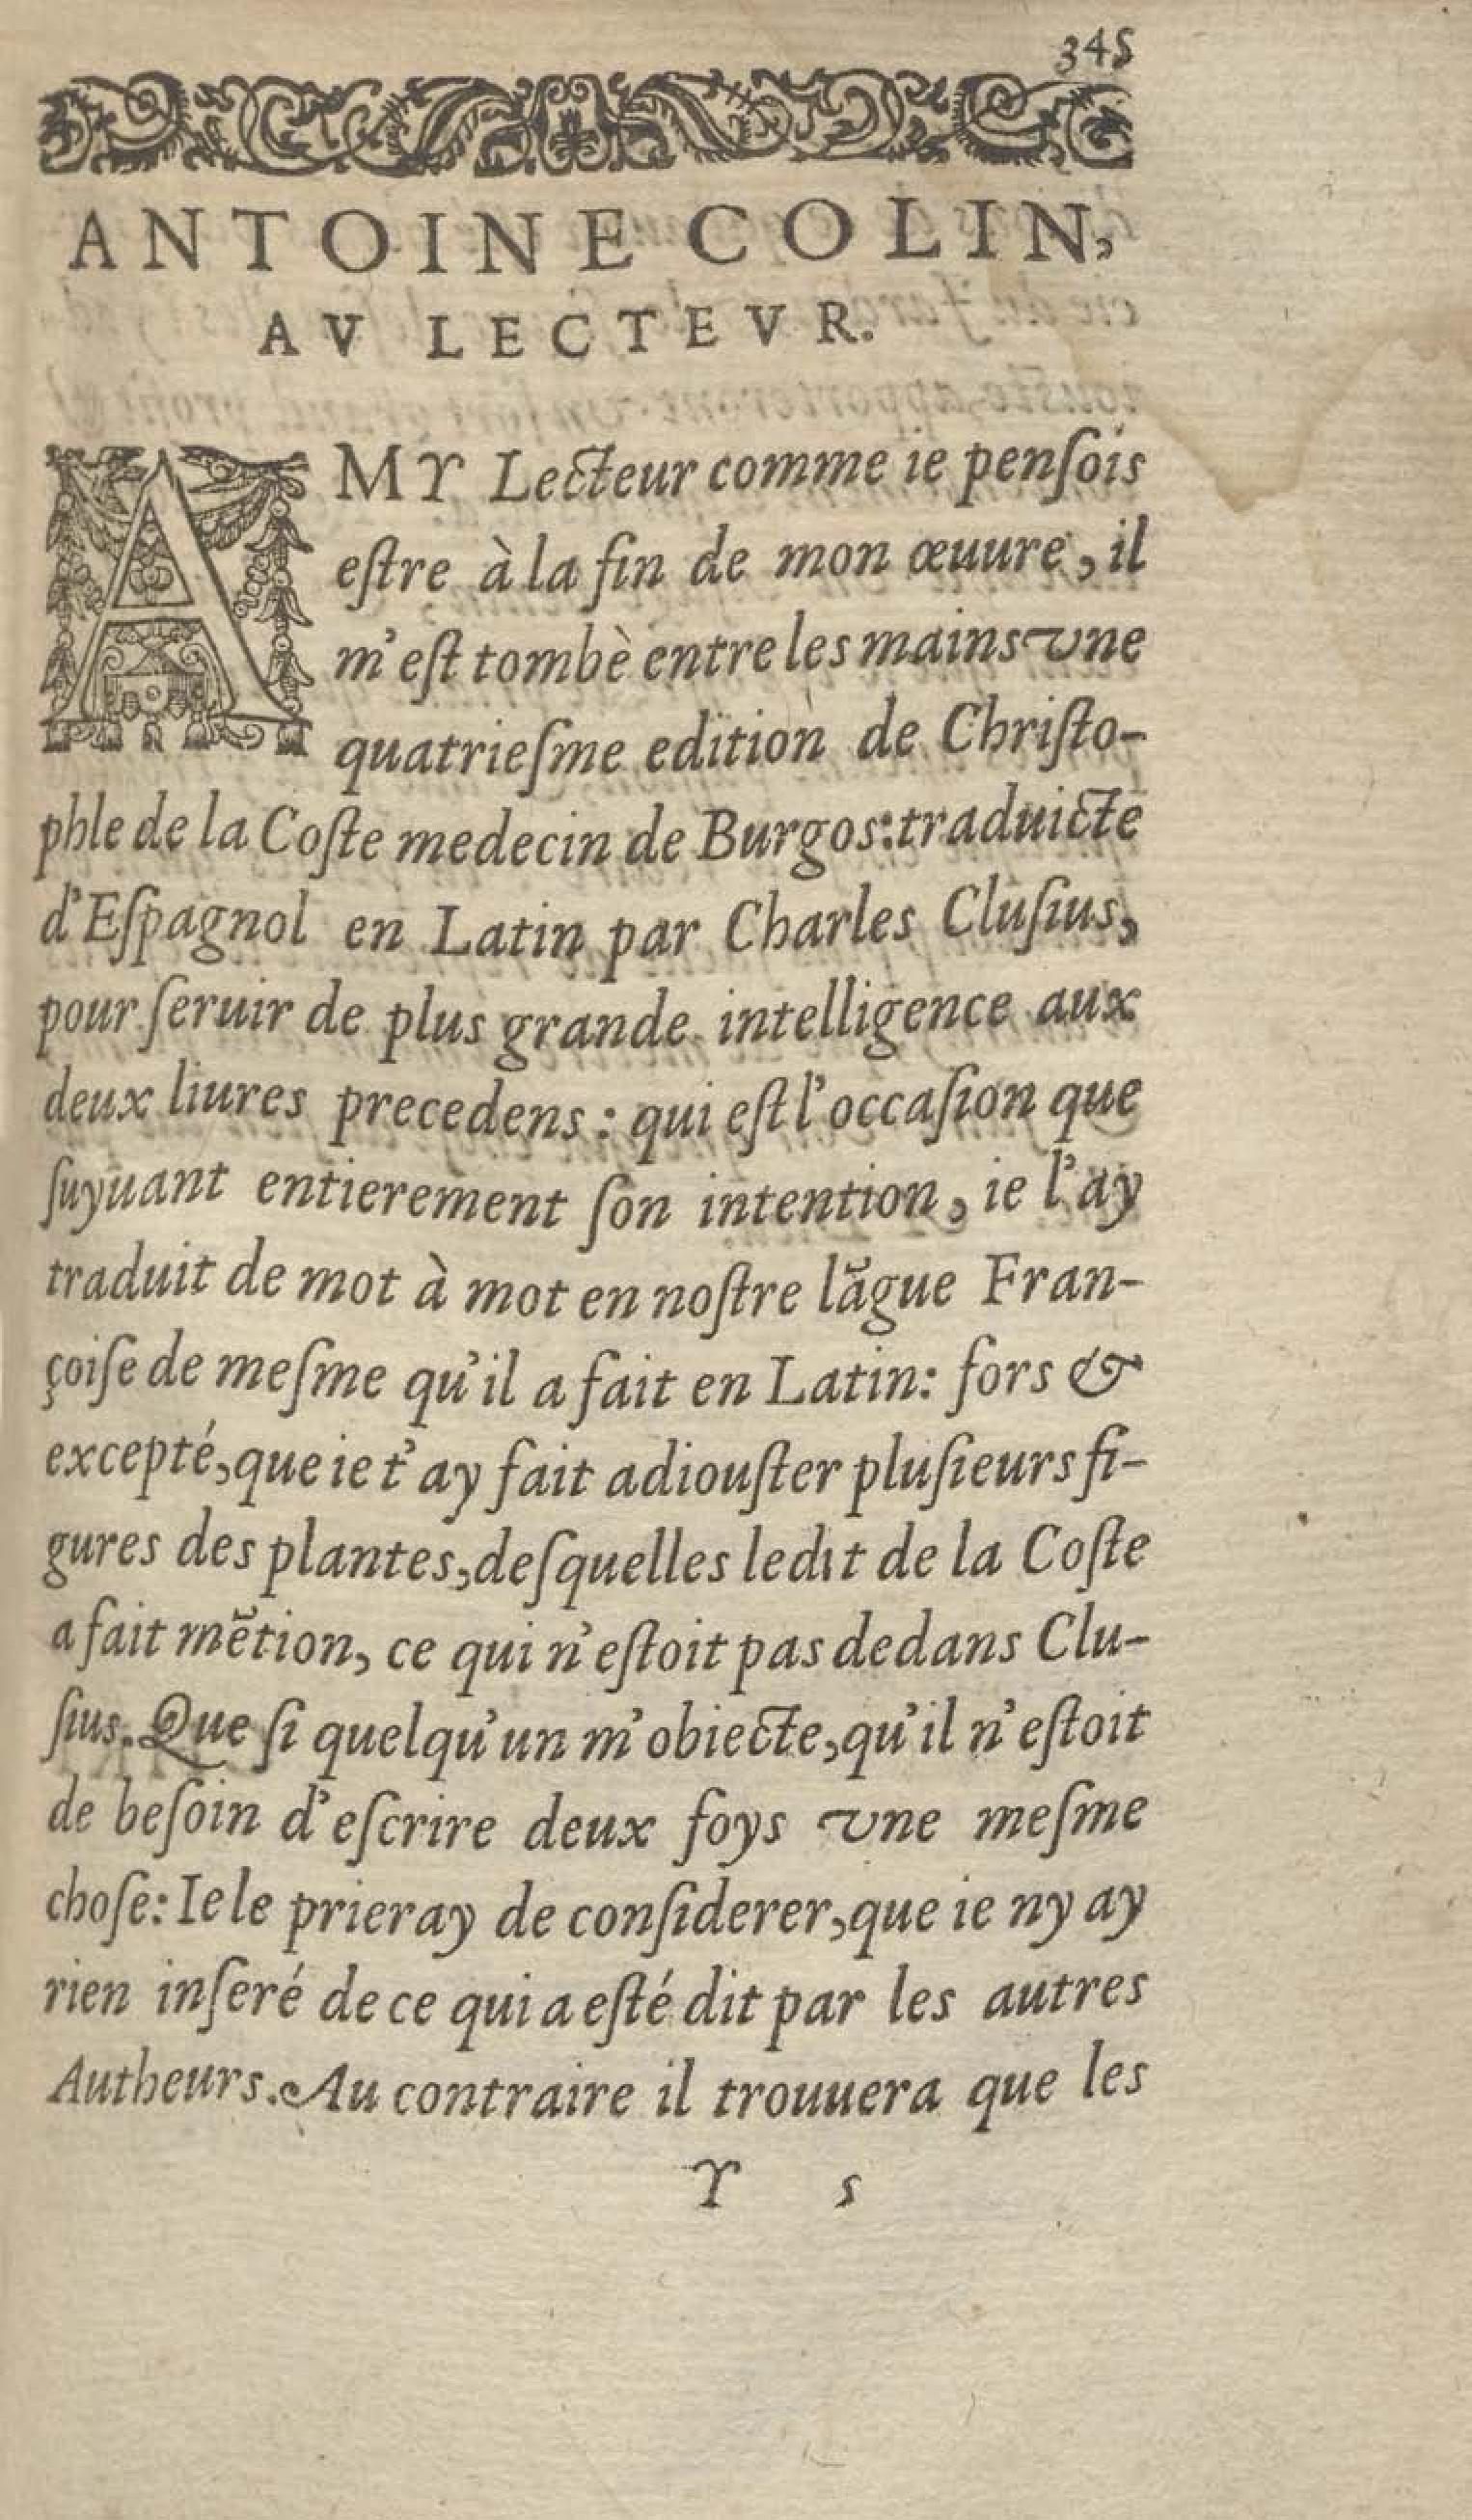 345
ANTOINE COLIN,
AV LECTEVR.
AMY Lecteur comme ie penſois
eſtre à la fin de mon œuure, il
m'eſt tombè entre les mains vne
quatrieſme edition de Chriſto-
phle de la Coſte medecin de Burgos:traduicte
d'Eſpagnol en Latin par Charles Cluſius,
pour ſeruir de plus grande intelligence aux
deux liures precedens : qui eſt l'occaſion que
ſuyuant entierement ſon intention, ie l'ay
traduit de mot à mot en noſtre lãgue Fran-
çoiſe de meſme qu'il a fait en Latin: fors &
excepté,que ie t'ay fait adiouſter pluſieurs fi-
gures des plantes,deſquelles ledit de la Coſte
a fait mẽtion, ce qui n'eſtoit pas dedans Clu-
ſius. Que ſi quelqu'un m'obiecte,qu'il n'eſtoit
de beſoin d'eſcrire deux foys vne meſme
choſe: Ie le prieray de conſiderer,que ie ny ay
rien inſeré de ce qui a eſté dit par les autres
Autheurs. Au contraire il trouuera que les
Y 5